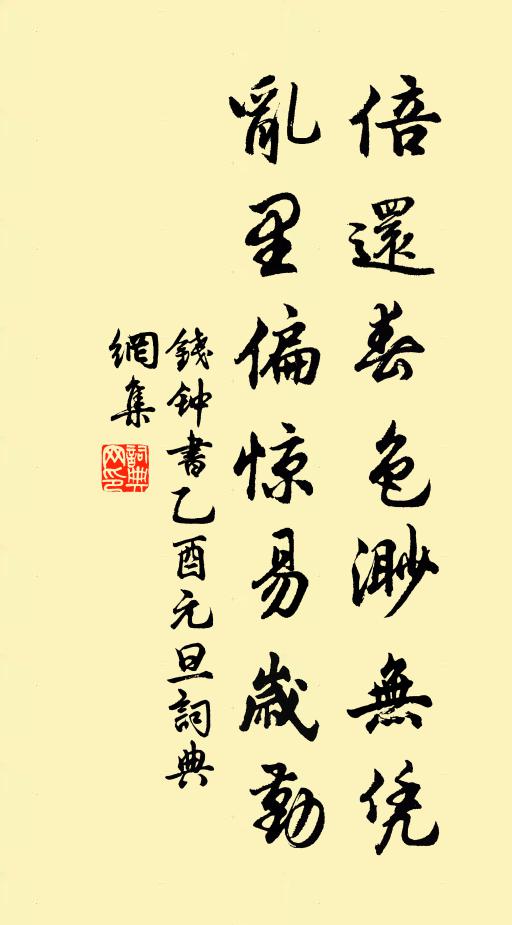 倍還春色渺無凭
亂里偏惊易歲勤
錢钟書乙酉元旦詞典
網集
詞典
网印